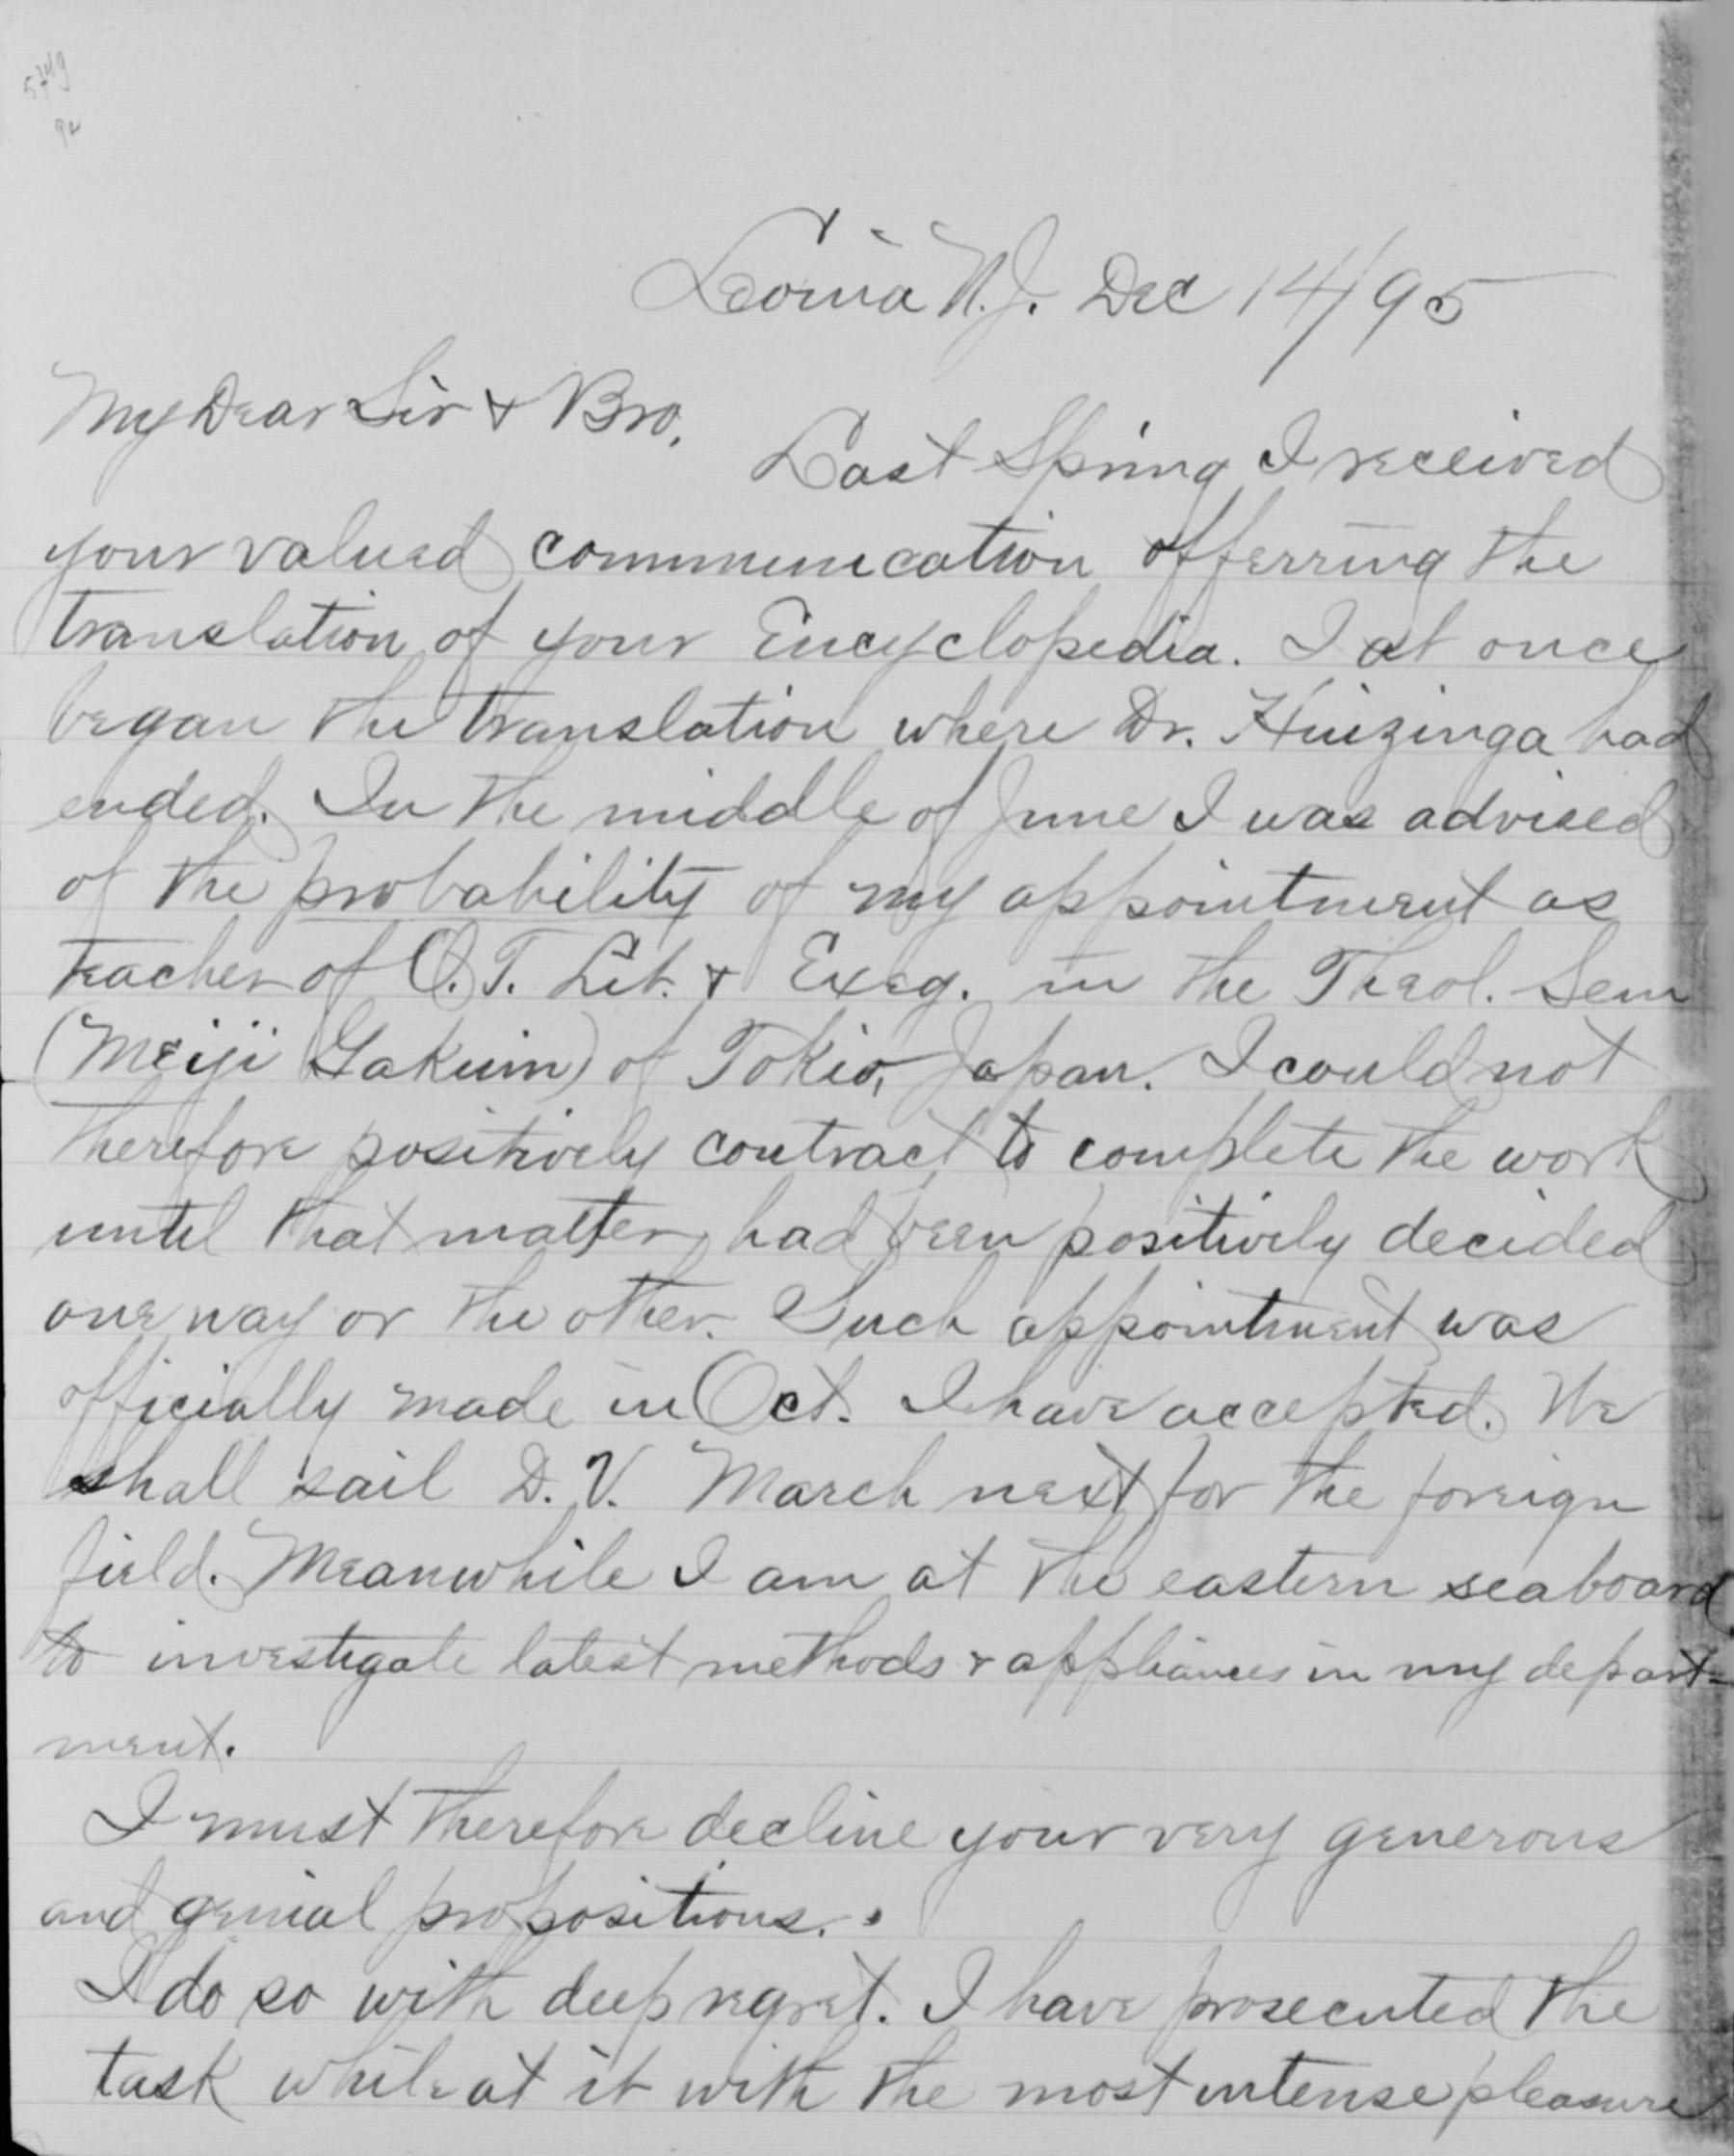 Leonia N.J. Dec 14/95
My Dear Sir & Bro.
Last Spring I received
your valued communication offerring the
translation of your Encyclopedia. I at once
began the translation where Dr. Huizinga had
ended. In the middle of June I was advised
of the probability of my appointment as
teacher of O.T. Lit. & Exeg. in the Theol. Sem
(Meiji Gakuin) of Tokio, Japan. I could not
therefore positively contract to complete the work
until that matter had been positively decided
one way or the other. Such appointment was
officially made in Oct. I have accepted. We
shall sail D.V. March next for the foreign
field. Meanwhile I am at the eastern seaboard
to investigate latest methods & appliances in my depart-
ment.
I must therefore decline your very generous
and genial propositions.
I do so with deep regret. I have prosecuted the
task while at it with the most intense pleasure